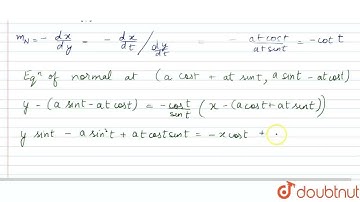 m_N = - dx/dy = - dx/dt / dy/dt = - at cost / at sint = - cot t
Eqⁿ of normal at (a cost + at sint, a sint - at cost)
y - (a sint - at cost) = - cost/sint (x - (a cost + at sint))
y sint - a sin²t + at cost sint = - x cost +
doubtnut